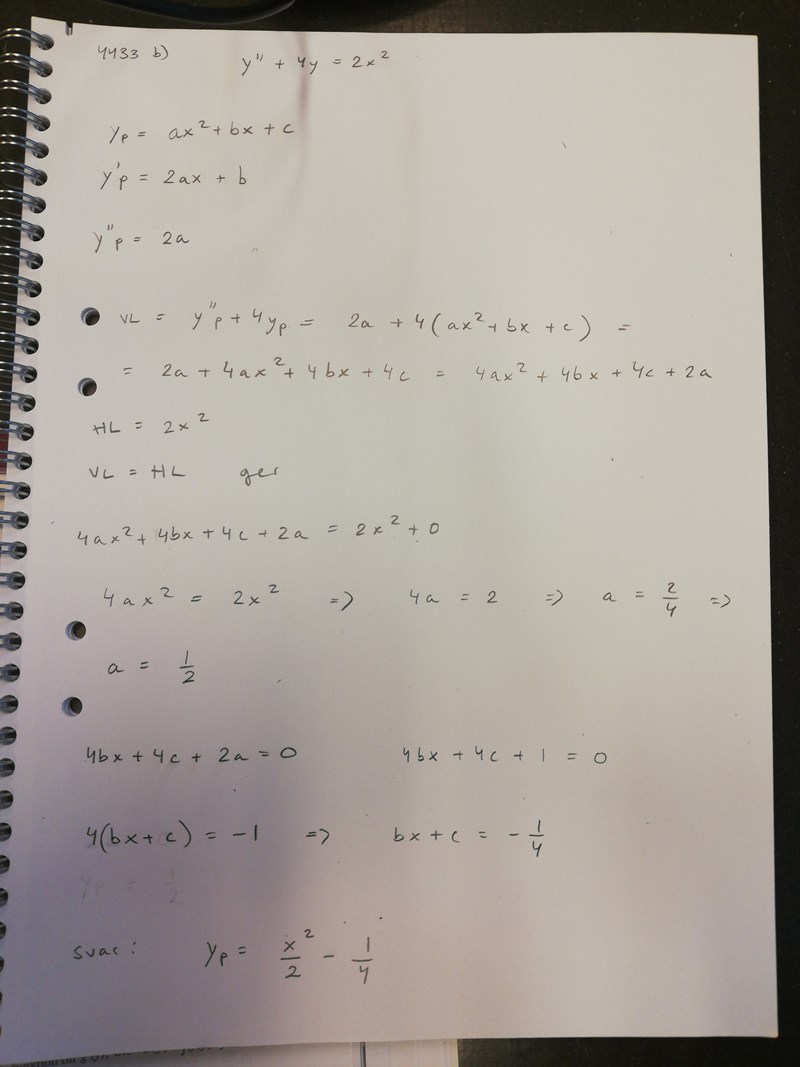 4433 b) y'' + 4y = 2x²
yₚ = ax² + bx + c
y'ₚ = 2ax + b
y''ₚ = 2a
VL = y''ₚ + 4yₚ = 2a + 4(ax² + bx + c) =
= 2a + 4ax² + 4bx + 4c = 4ax² + 4bx + 4c + 2a
HL = 2x²
VL = HL ger
4ax² + 4bx + 4c + 2a = 2x² + 0
4ax² = 2x² => 4a = 2 => a = 2/4 =>
a = 1/2
4bx + 4c + 2a = 0 4bx + 4c + 1 = 0
4(bx + c) = -1 => bx + c = - 1/4
yₚ = 1/2
svar: yₚ = x²/2 - 1/4